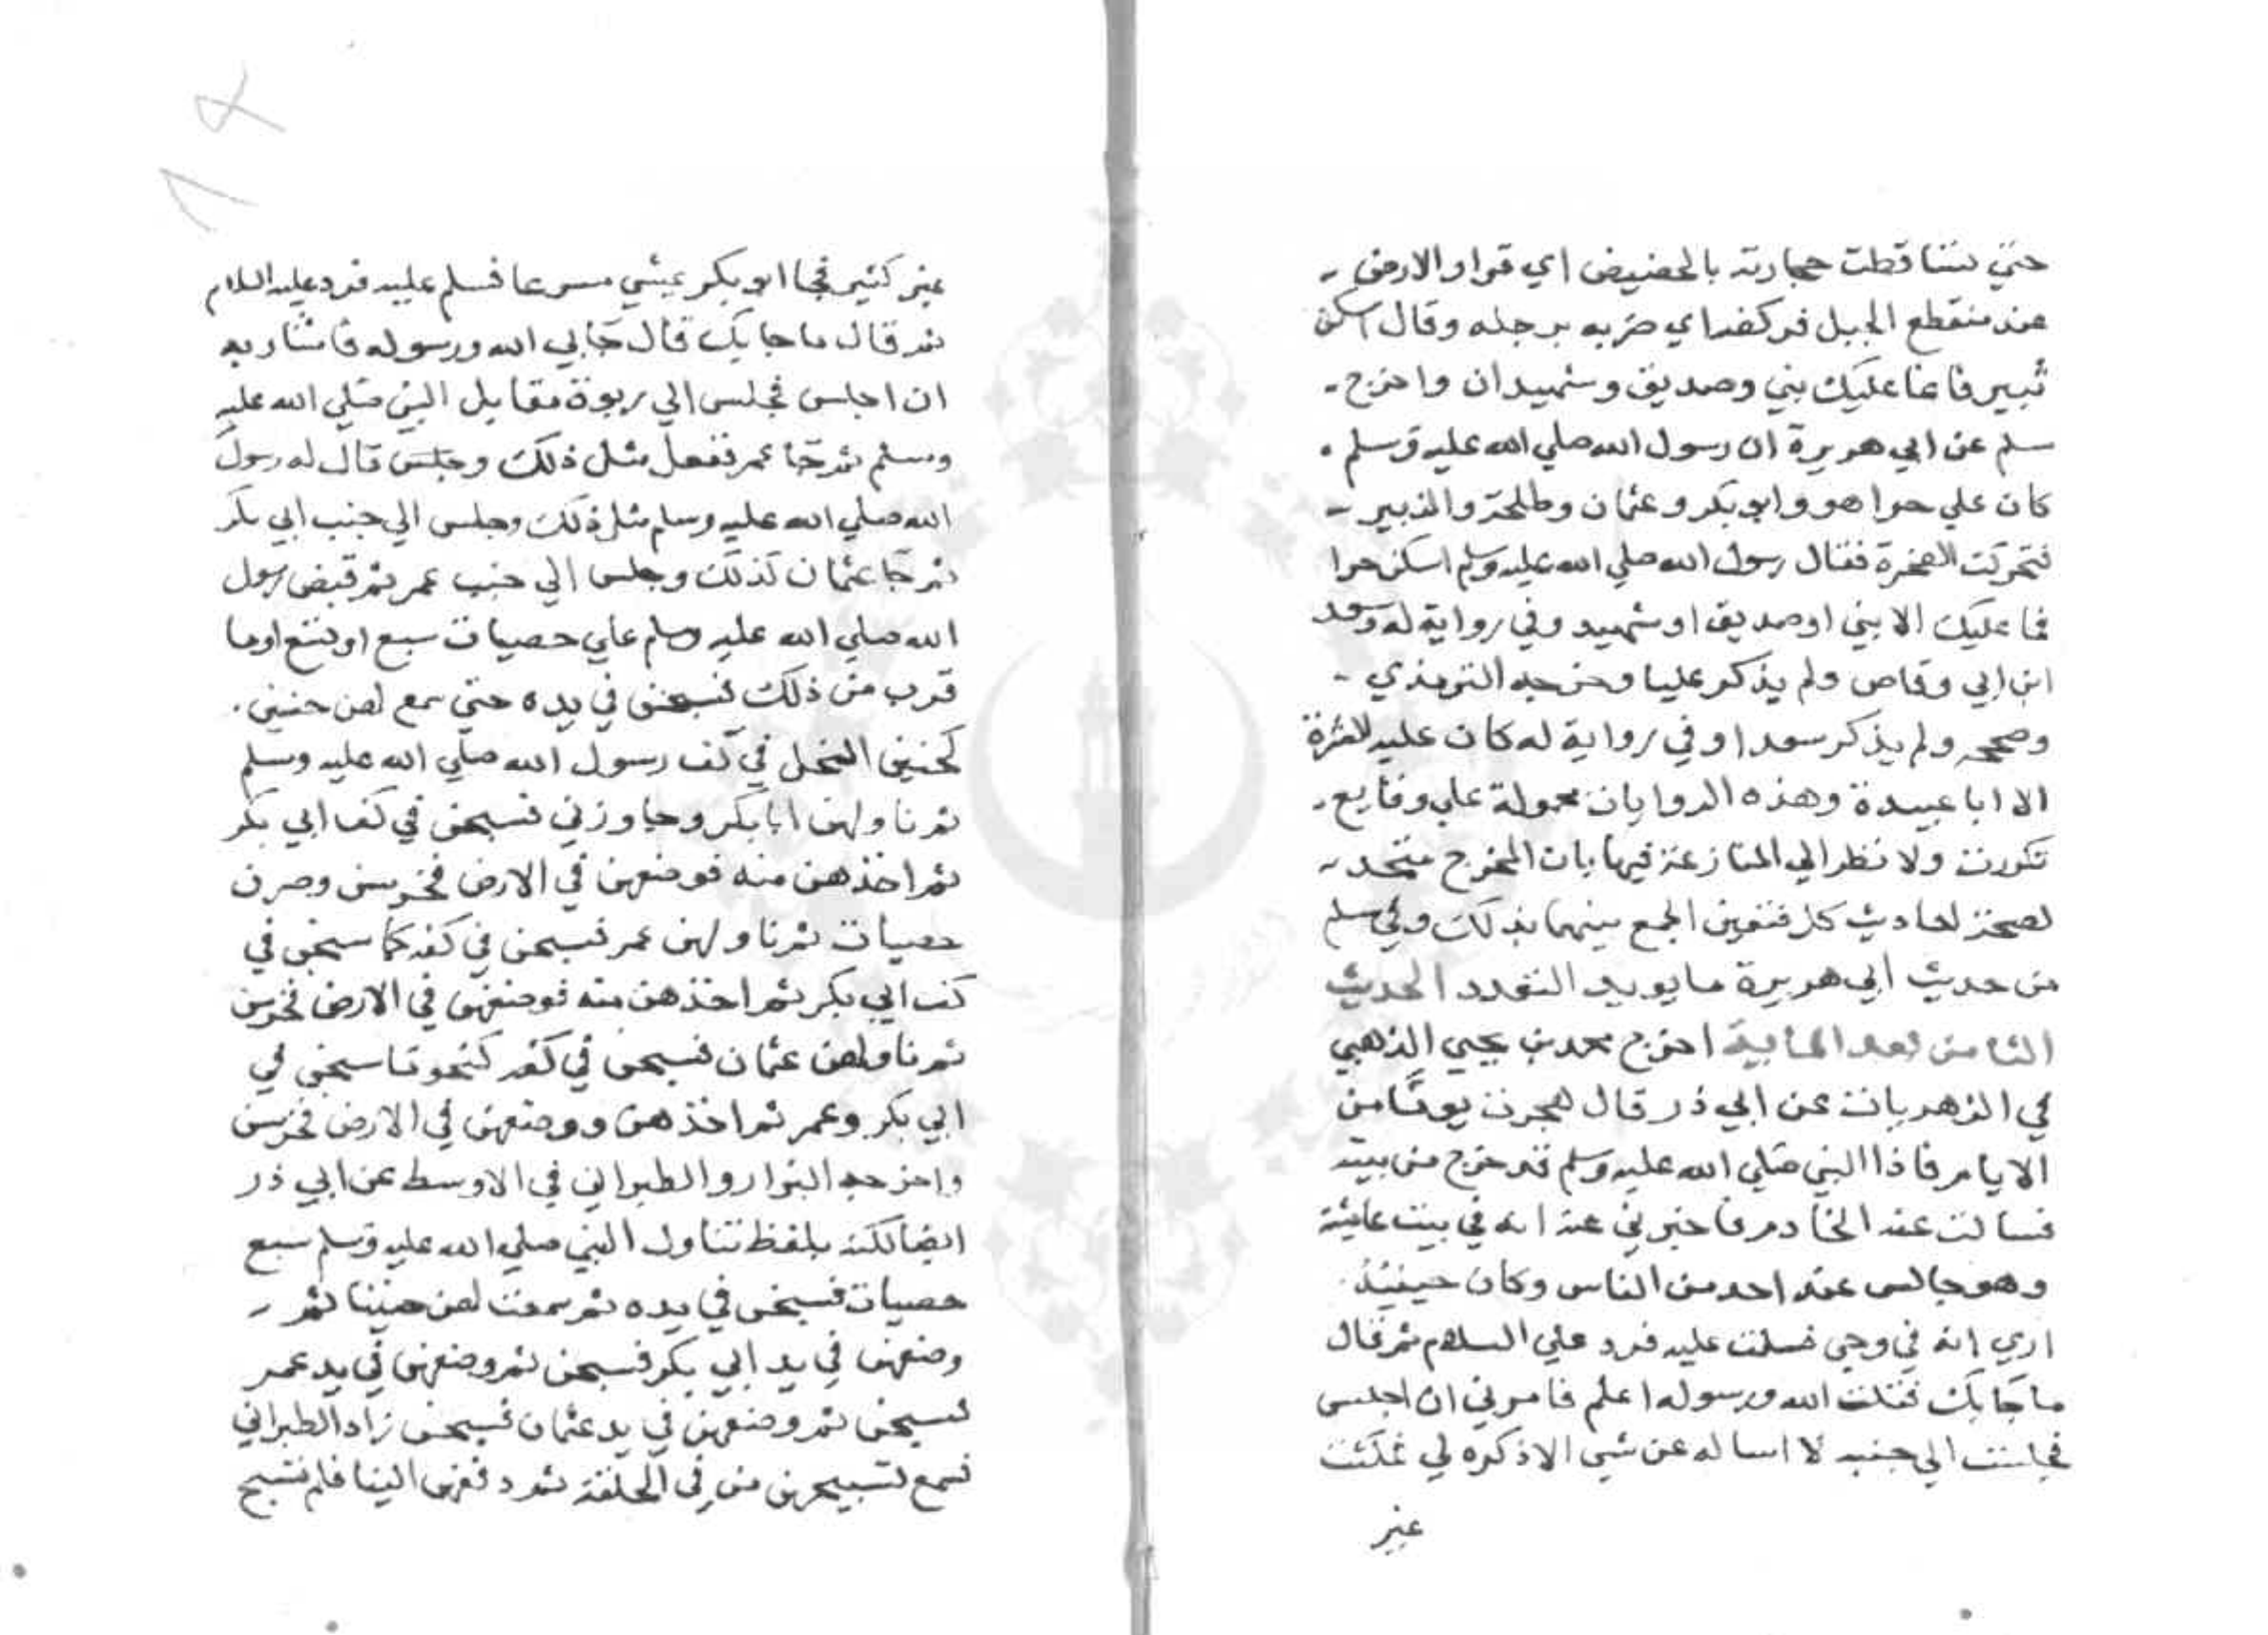 حتي تتناقطت حجارته بالحضيض اي قرار الارض
عند منقطع الجبل فركضه اي ضربه برجله وقال اسكن
ثبير فانما عليك نبي وصديق وشهيدان واخرج
سلم عن ابي هريرة ان رسول الله صلي الله عليه وسلم
كان علي حرا هو وابو بكر وعثمان وطلحة والزبير
فتحركت الصخرة فقال رسول الله صلي الله عليه وسلم اسكن حرا
فما عليك الا نبي او صديق او شهيد وفي رواية له وسعد
ابن ابي وقاص ولم يذكر عليا وخرجه الترمذي
وصححه ولم يذكر سعدا وفي رواية له كان عليه العشرة
الا ابا عبيدة وهذه الروايات محمولة علي وقايع
تكررت ولا نظر الي المنازعة فيها بان المخرج متحد
لصحة احاديث كل فتعين الجمع بينهما بذلك وفي مسلم
من حديث ابي هريرة ما يويد التعدد الحديث
الثامن بعد الماية اخرج محمد بن يحيي الذهبي
في الزهريات عن ابي ذر قال هجرت يوما من
الايام فاذا النبي صلي الله عليه وسلم قد خرج من بيته
فسالت عنه الخادم فاخبرني عنه انه في بيت عايشة
وهو جالس عنده احد من الناس وكان حينئذ
اري انه في وحي فسلمت عليه فرد علي السلام ثم قال
ما جا بك فقلت الله ورسوله اعلم فامرني ان اجلس
فجلست الي جنبه لا اساله عن شي الا ذكره لي فمكثت
غير
غير كثير فجا ابو بكر يمشي مسرعا فسلم عليه فرد عليه السلام
ثم قال ما جا بك قال جا بي الله ورسوله فاشار به
ان اجلس فجلس الي ربوة مقابل النبي صلي الله عليه
وسلم ثم جا عمر ففعل مثل ذلك وجلس قال له رسول
الله صلي الله عليه وسلم مثل ذلك وجلس الي جنب ابي بكر
ثم جا عثمان كذلك وجلس الي جنب عمر ثم قبض رسول
الله صلي الله عليه وسلم علي حصيات سبع او تسع او ما
قرب من ذلك فسبحن في يده حتي سمع لهن حنين
كحنين النخل في كف رسول الله صلي الله عليه وسلم
ثم ناولهن ابا بكر وجاوزني فسبحن في كف ابي بكر
ثم اخذهن منه فوضعهن في الارض فخرسن وصرن
حصيات ثم ناولهن عمر فسبحن في كفه كما سبحن في
كف ابي بكر ثم اخذهن منه فوضعهن في الارض فخرسن
ثم ناولهن عثمان فسبحن في كفه كنحو ما سبحن في
ابي بكر وعمر ثم اخذهن ووضعهن في الارض فخرسن
واخرجه البزار والطبراني في الاوسط عن ابي ذر
ايضا لكنه بلفظ تناول النبي صلي الله عليه وسلم سبع
حصيات فسبحن في يده ثم سمعت لهن حنينا ثم
وضعهن في يد ابي بكر فسبحن ثم وضعهن في يد عمر
فسبحن ثم وضعهن في يد عثمان فسبحن زاد الطبراني
فسمع تسبيحهن من في الحلقة ثم دفعهن الينا فلم تسبح